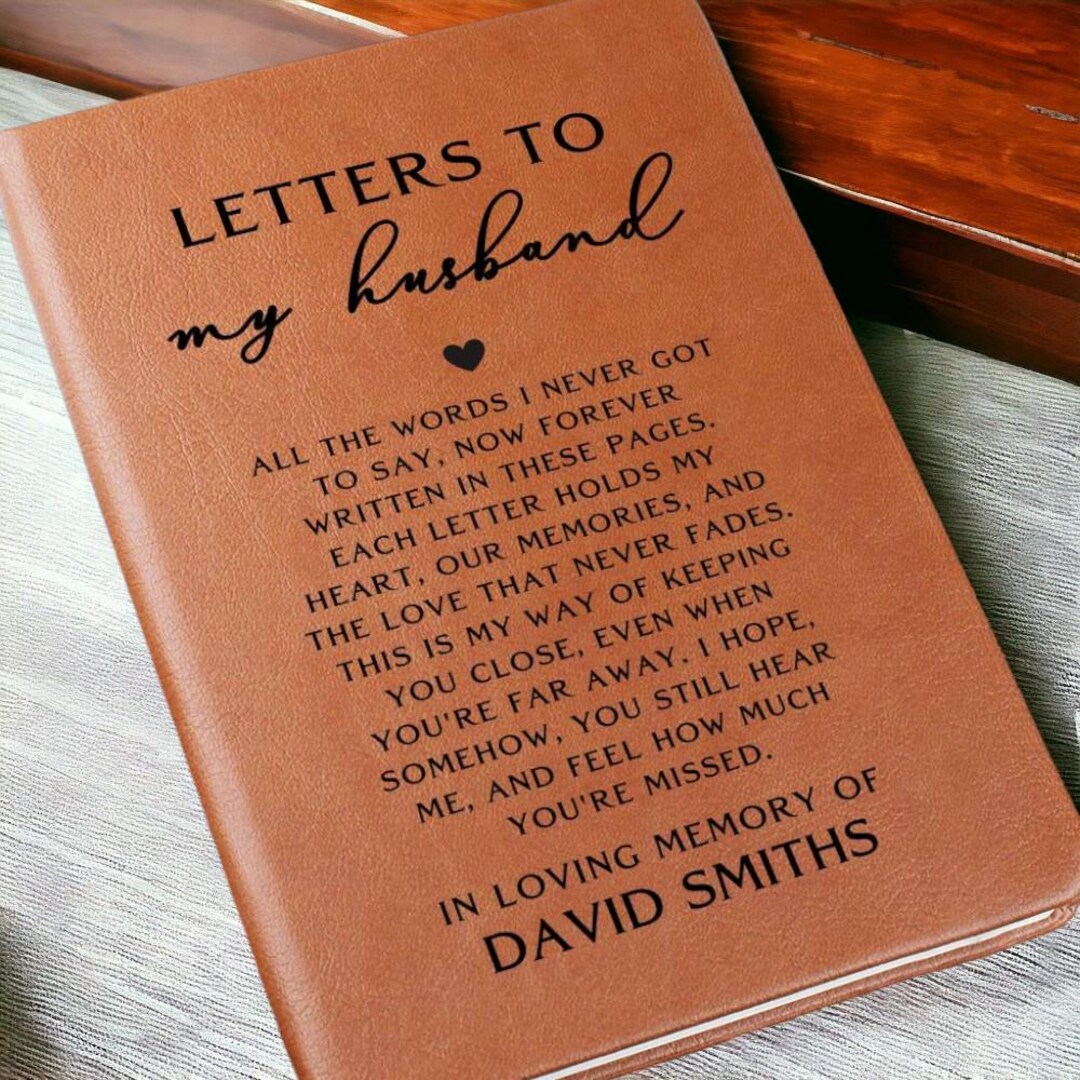 LETTERS TO
my husband
ALL THE WORDS I NEVER GOT
TO SAY, NOW FOREVER
WRITTEN IN THESE PAGES.
EACH LETTER HOLDS MY
HEART, OUR MEMORIES, AND
THE LOVE THAT NEVER FADES.
THIS IS MY WAY OF KEEPING
YOU CLOSE, EVEN WHEN
YOU'RE FAR AWAY. I HOPE,
SOMEHOW, YOU STILL HEAR
ME, AND FEEL HOW MUCH
YOU'RE MISSED.
IN LOVING MEMORY OF
DAVID SMITHS